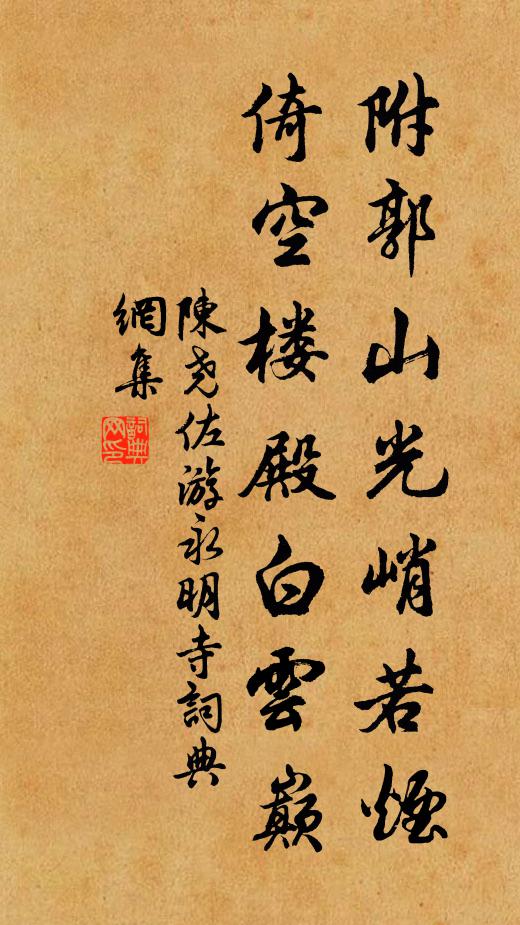 附郭山光峭若煙
倚空楼殿白雲巔
陳堯佐游永明寺詞典
網集
詞典
网印